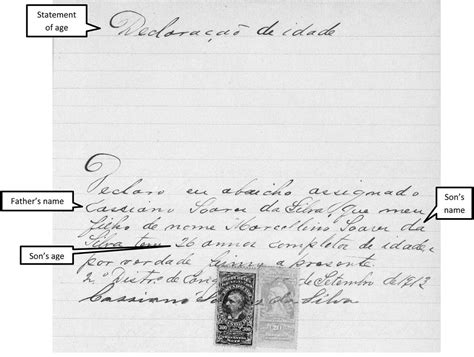 Statement
of age
Declaração de idade
Father's name
Son's
name
Son's age
Declaro eu abaicho assignado
Cassiano Soares da Silva que meu
filho de nome Marcellino Soares da
Silva tem 26 annos completa de idade
por verdade firmo a presente
2º Distr. de de Setembro de 1912
Cassiano da Silva
300